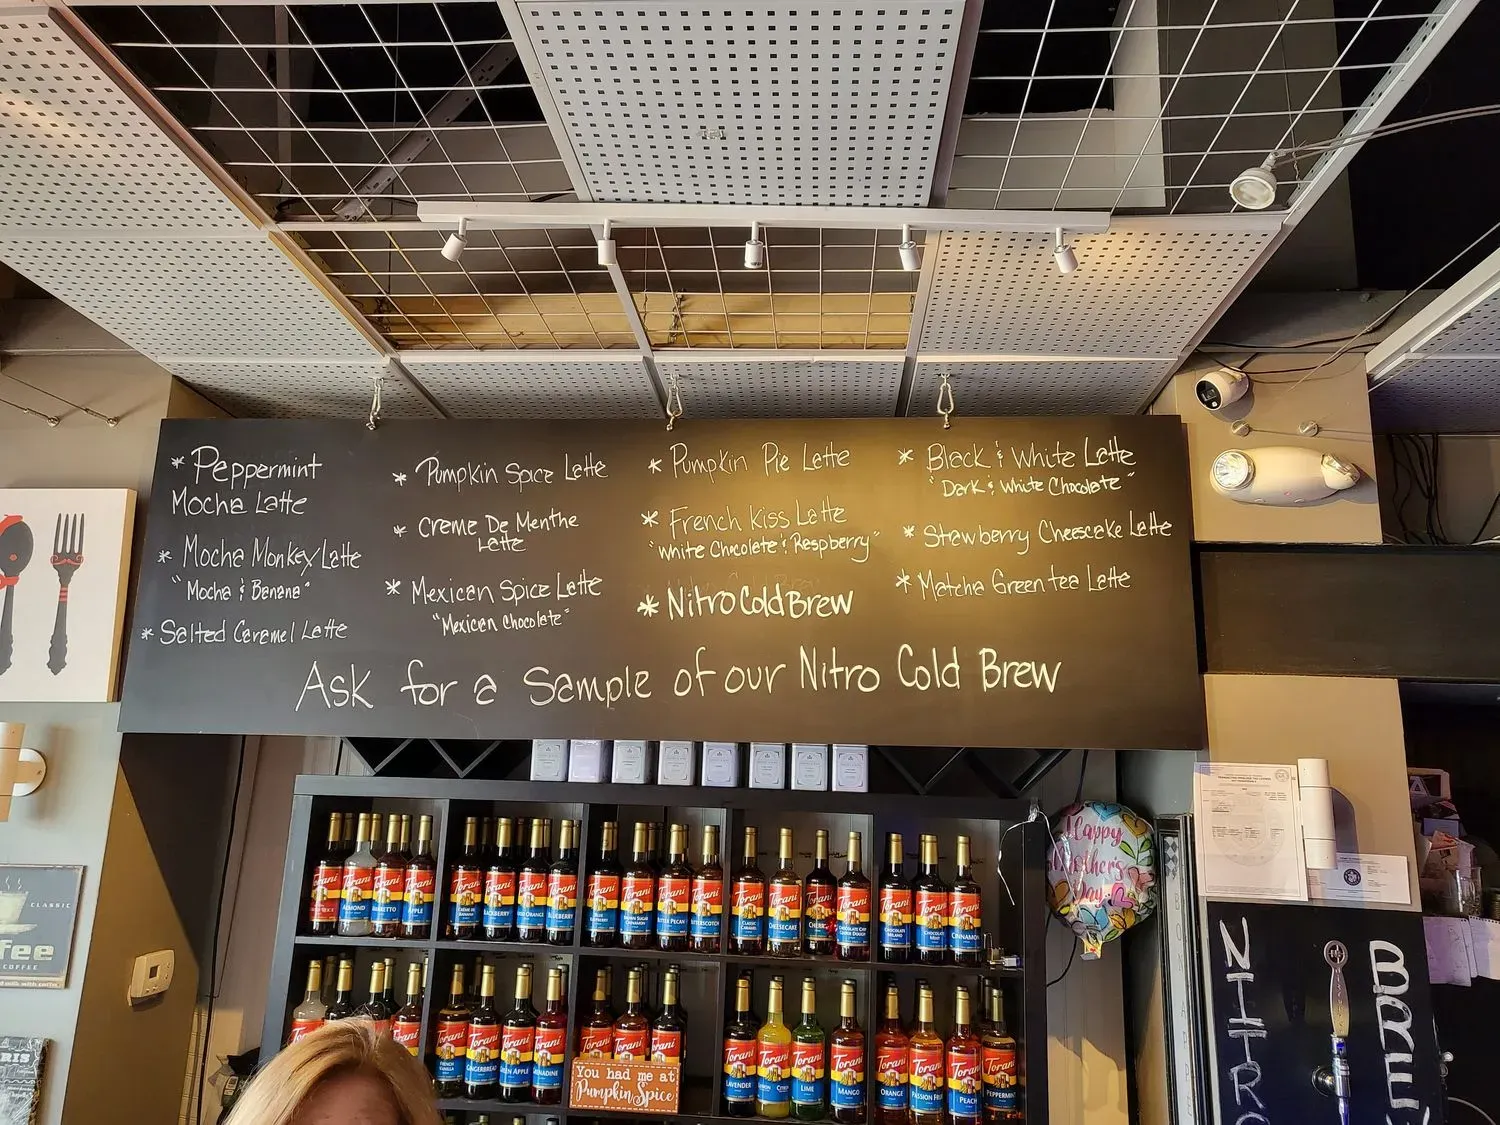 * Peppermint
Mocha Latte
* Mocha Monkey Latte
"Mocha & Banana"
* Salted Caramel Latte
* Pumpkin Spice Latte
* Creme De Menthe
Latte
* Mexican Spice Latte
"Mexican Chocolate"
* Pumpkin Pie Latte
* French Kiss Latte
"White Chocolate & Raspberry"
* Nitro Cold Brew
* Black & White Latte
"Dark & White Chocolate"
* Strawberry Cheesecake Latte
* Matcha Green tea Latte
Ask for a Sample of our Nitro Cold Brew
CLASSIC
fee
COFFEE
Happy
Mother's
Day
Torani
ALMOND
Torani
AMARETTO
Torani
APPLE
Torani
Torani
BLACKBERRY
Torani
Torani
BLUEBERRY
Torani
BLUE
RASPBERRY
Torani
BROWN SUGAR
CINNAMON
Torani
BUTTER PECAN
Torani
BUTTERSCOTCH
Torani
CLASSIC
CARAMEL
Torani
CHEESECAKE
Torani
CHERRY
Torani
CHOCOLATE CHIP
COOKIE DOUGH
Torani
CHOCOLATE
MILANO
Torani
CHOCOLATE
MINT
Torani
CINNAMON
Torani
FRENCH
VANILLA
Torani
GINGERBREAD
Torani
GREEN APPLE
Torani
GRENADINE
Torani
LAVENDER
Torani
Torani
LIME
Torani
MANGO
Torani
ORANGE
Torani
PASSION FRUIT
Torani
PEACH
Torani
PEPPERMINT
You had me at
Pumpkin Spice
NITRO
BREW